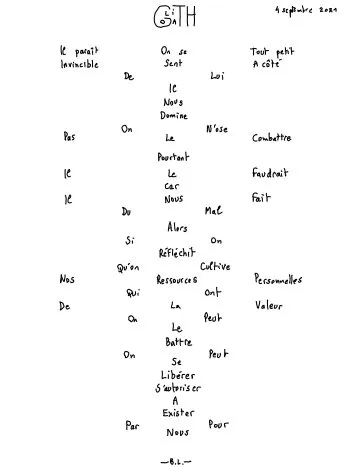 GOLIATH
4 septembre 2021
Il paraît On se Tout petit
Invincible Sent A côté
De Lui
Il
Nous
Domine
On N'ose
Pas Le Combattre
Pourtant
Il Le Faudrait
Car
Il Nous Fait
Du Mal
Alors
Si On
Réfléchit
Qu'on Cultive
Nos Ressources Personnelles
Qui Ont
De La Valeur
On Peut
Le
Battre
On Peut
Se
Libérer
S'autoriser
A
Exister
Par Pour
Nous
—B.L.—